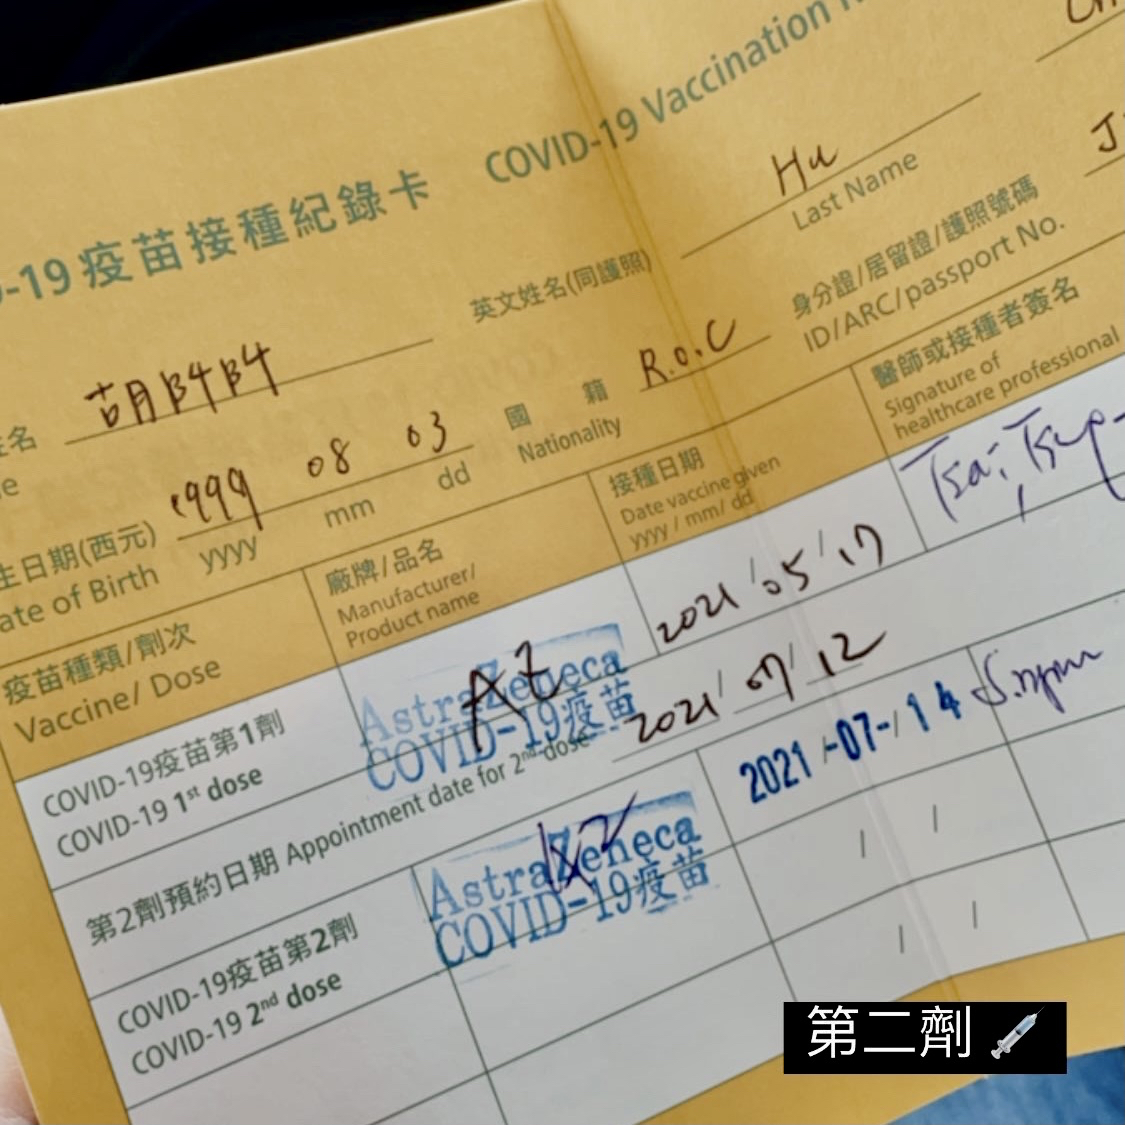 -19 疫苗接種紀錄卡 COVID-19 Vaccination
姓名 胡
英文姓名(同護照) Hu
Last Name
生日期(西元) 1999 08 03
ate of Birth yyyy mm dd
國籍 R.O.C
Nationality
身分證/居留證/護照號碼
ID/ARC/passport No.
疫苗種類/劑次
Vaccine/ Dose
廠牌/品名
Manufacturer/
Product name
接種日期
Date vaccine given
yyyy / mm/ dd
醫師或接種者簽名
Signature of
healthcare professional
COVID-19疫苗第1劑
COVID-19 1st dose
AstraZeneca
COVID-19疫苗
AZ
2021/05/17
第2劑預約日期 Appointment date for 2nd dose 2021/07/12
COVID-19疫苗第2劑
COVID-19 2nd dose
AstraZeneca
COVID-19疫苗
2021-07-14
第二劑 💉